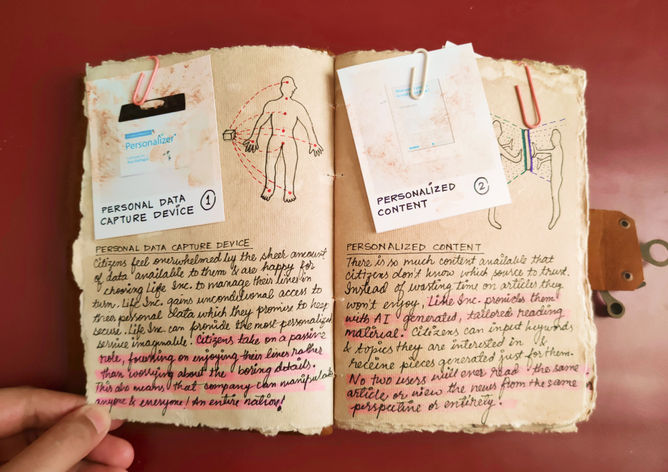 Personalizer
PERSONAL DATA
CAPTURE DEVICE 1
PERSONAL DATA CAPTURE DEVICE
Citizens feel overwhelmed by the sheer amount
of data available to them & are happy for
Life Inc. to manage their lives in
turn. Life Inc. gains unconditional access to
their personal data which they promise to keep
secure. Life Inc. can provide the most personalised
service imaginable. Citizens take on a passive
role, focusing on enjoying their lives rather
than worrying about the boring details.
This also means that company can manipulate
anyone & everyone! An entire nation!
PERSONALIZED
CONTENT 2
PERSONALIZED CONTENT
There is so much content available that
citizens don't know which source to trust.
Instead of wasting time on articles they
won't enjoy, Life Inc. provides them
with AI generated, tailored reading
material. Citizens can input keywords
& topics they are interested in &
receive pieces generated just for them.
No two users will ever read the same
article or view the news from the same
perspective or entirety.